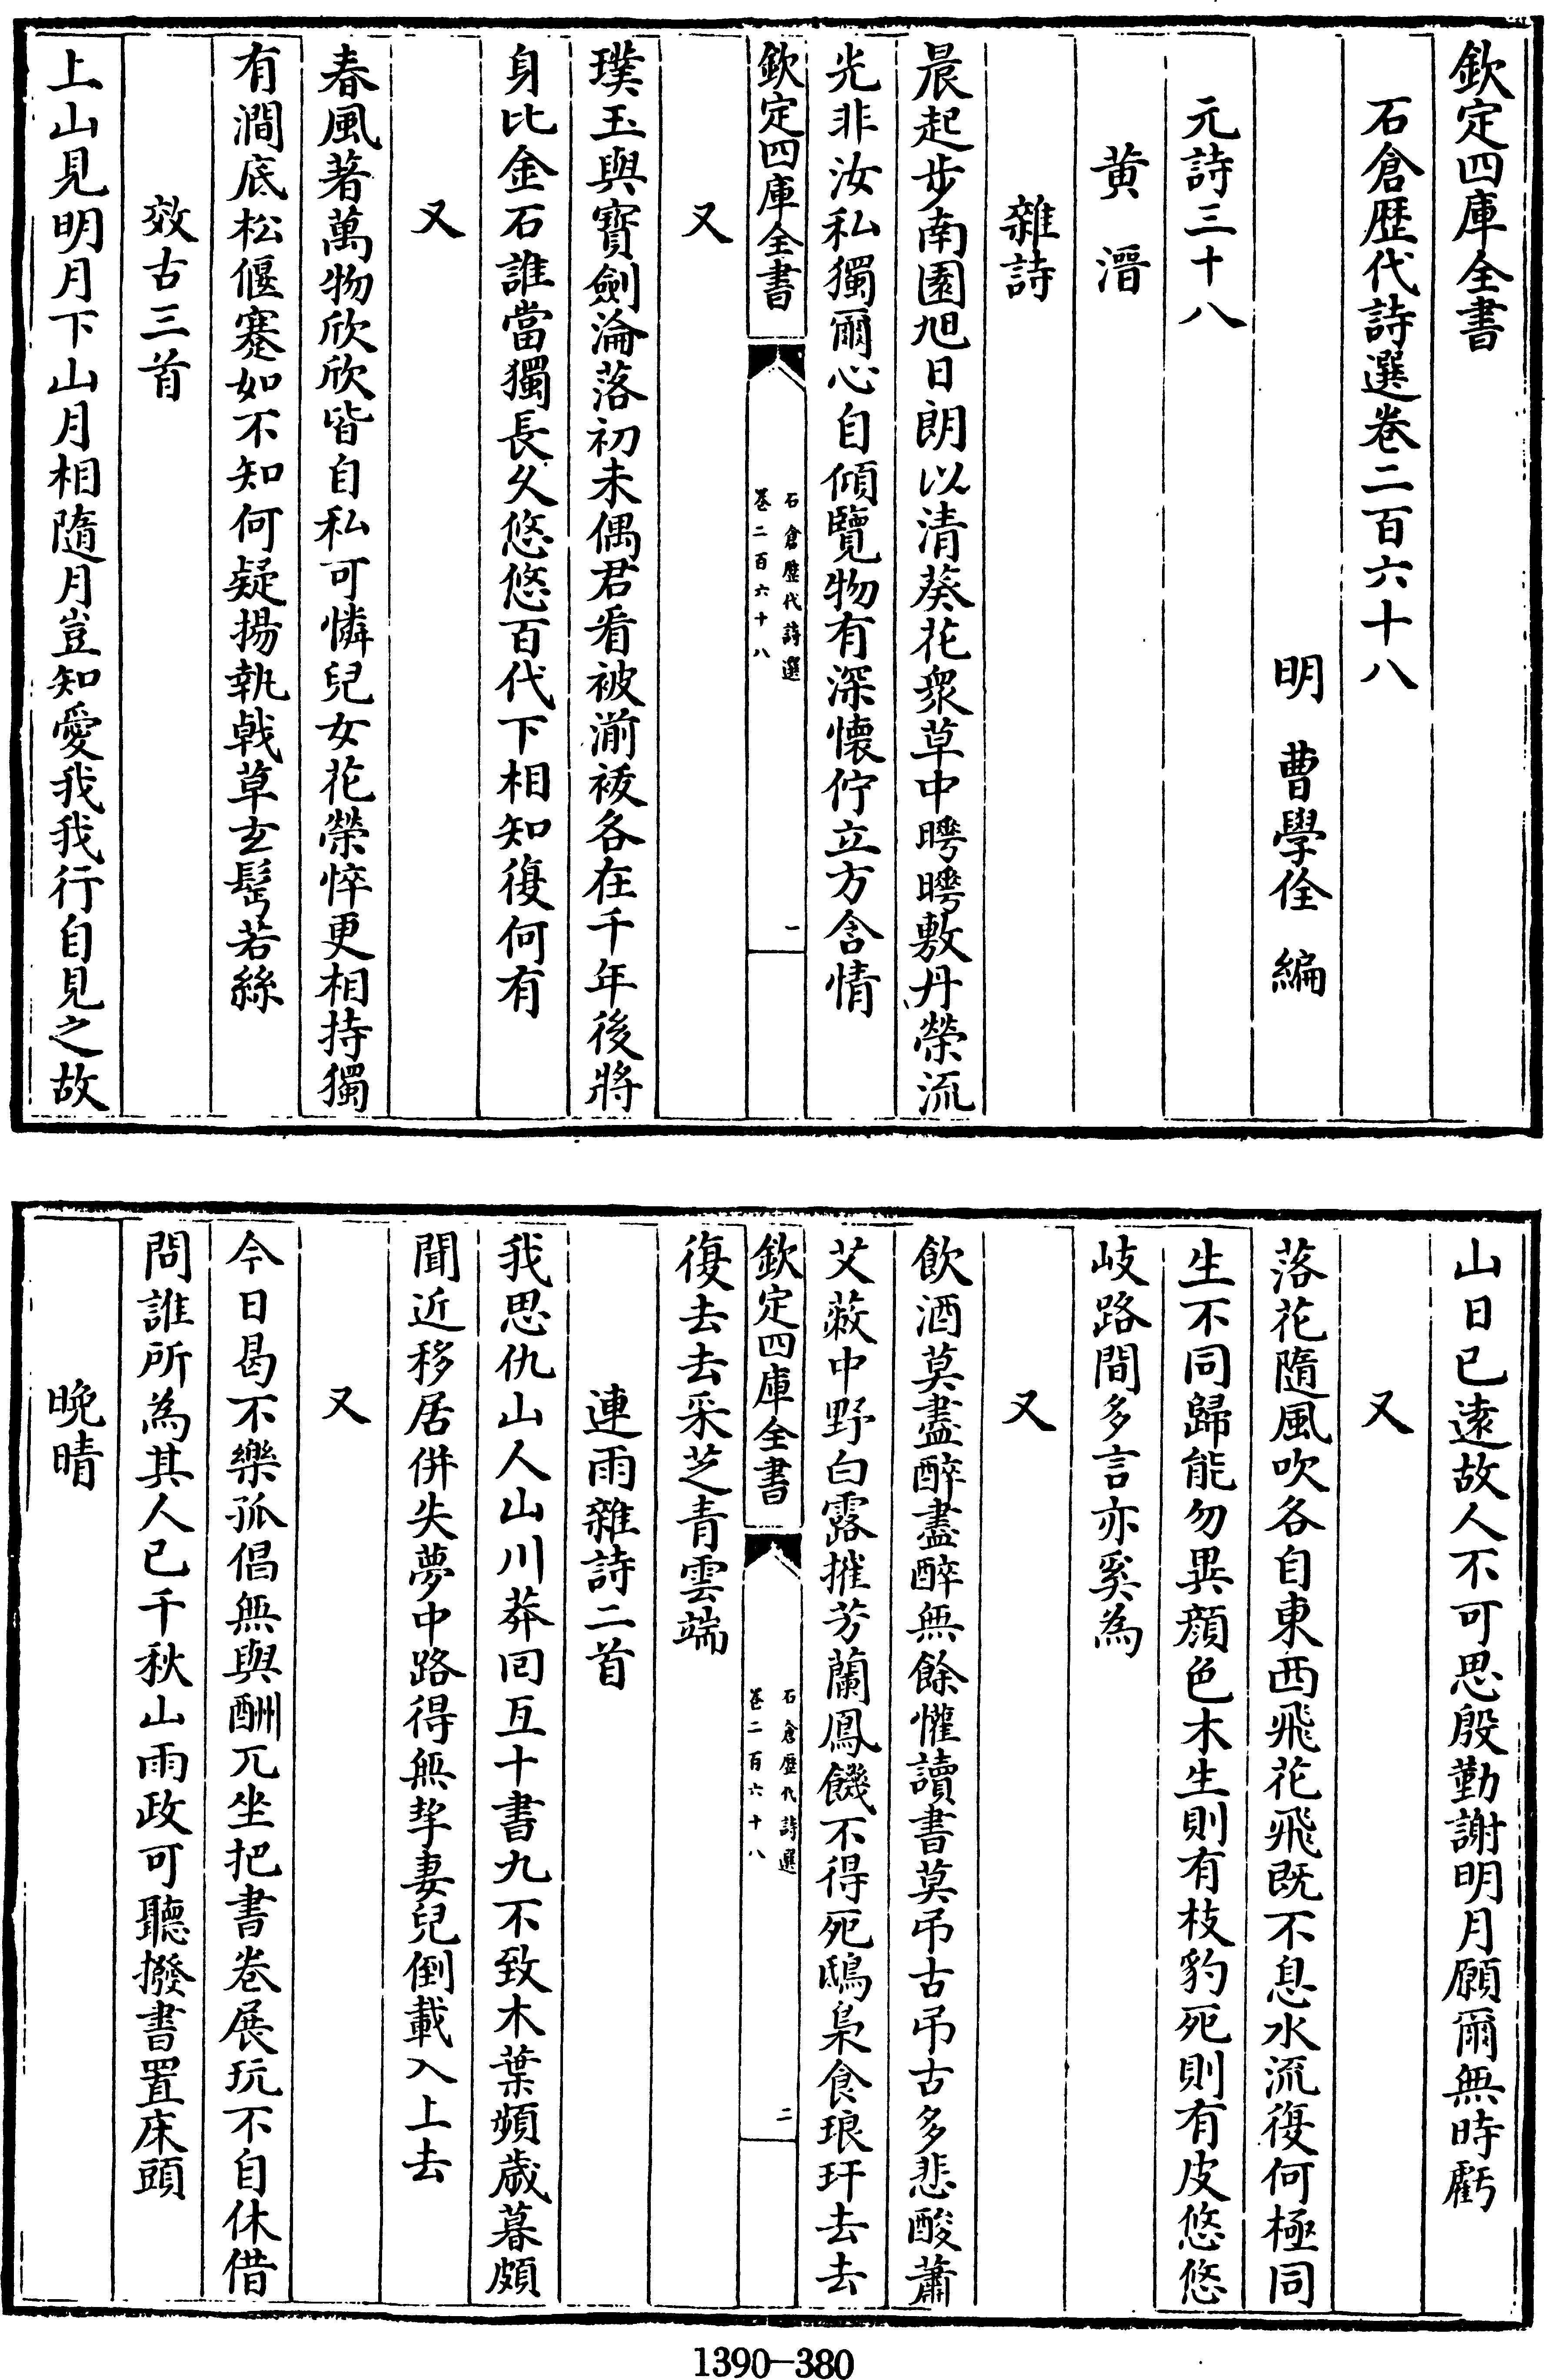 欽定四庫全書
石倉歴代詩選卷二百六十八
明　曹學佺　編
元詩三十八
黄　溍
雜詩
晨起步南園旭日朗以清葵花衆草中暳暳敷丹榮流
光非汝私獨爾心自傾覽物有深懐佇立方含情
欽定四庫全書
石倉歴代詩選
卷二百六十八
一
又
璞玉與寳劍淪落初未偶君看被湔袚各在千年後將
身比金石誰當獨長久悠悠百代下相知復何有
又
春風著萬物欣欣皆自私可憐兒女花榮悴更相持獨
有澗底松偃蹇如不知何疑揚執㦸草𤣥髩若絲
效古三首
上山見明月下山月相隨月豈知愛我我行自見之故
山日已逺故人不可思殷勤謝明月願爾無時虧
又
落花隨風吹各自東西飛花飛既不息水流復何極同
生不同歸能勿異顔色木生則有枝豹死則有皮悠悠
岐路間多言亦奚為
又
飲酒莫盡醉盡醉無餘懽讀書莫弔古弔古多悲酸蕭
艾蔽中野白露摧芳蘭鳳饑不得死鴟梟食琅玕去去
復去去采芝青雲端
欽定四庫全書
石倉歴代詩選
卷二百六十八
二
連雨雜詩二首
我思仇山人山川莽囘互十書九不致木葉頻歳暮頗
聞近移居併失夢中路得無挈妻兒倒載入上去
又
今日曷不樂孤倡無與酬兀坐把書卷展玩不自休借
問誰所為其人已千秋山雨政可聽撥書置床頭
晚晴
1390—380